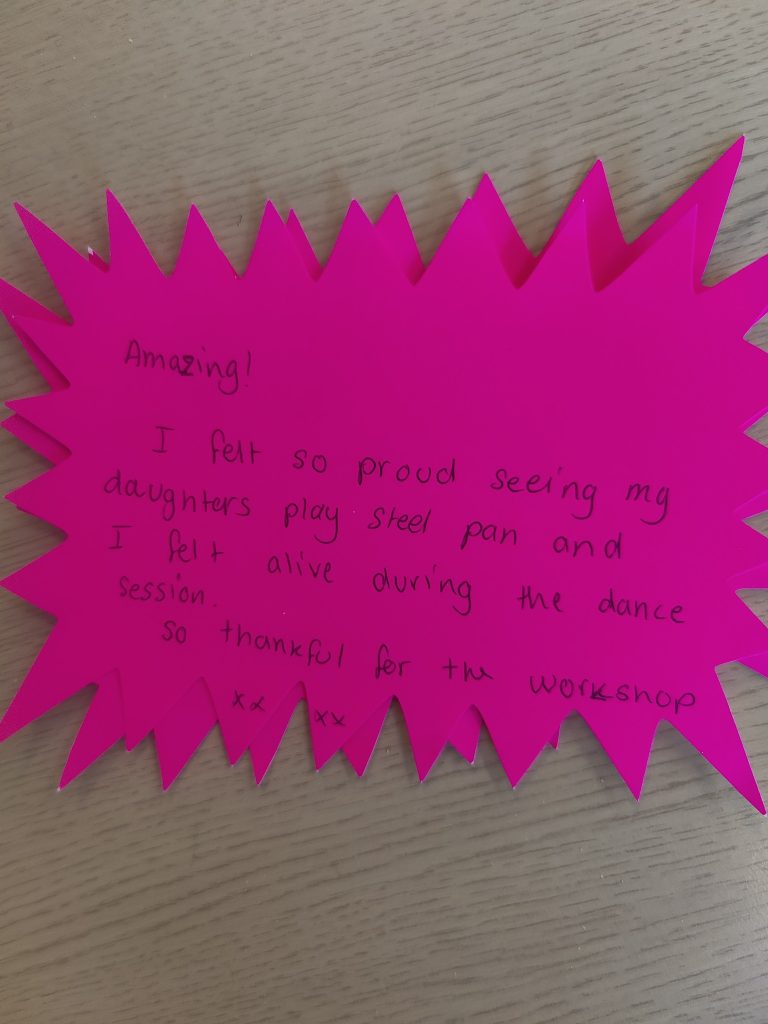 Amazing!
I felt so proud seeing my
daughters play steel pan and
I felt alive during the dance
session.
So thankful for the workshop
xx xx